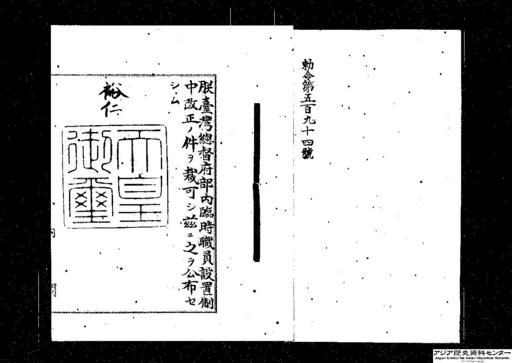 勅令第五百九十四號
朕臺灣總督府部內臨時職員設置制
中改正ノ件ヲ裁可シ茲ニ之ヲ公布セ
シム
裕仁
天皇
御璽
アジア歴史資料センター
Japan Center for Asian Historical Records